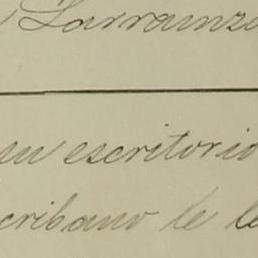 Larrainza
un escritorio
scribano le le